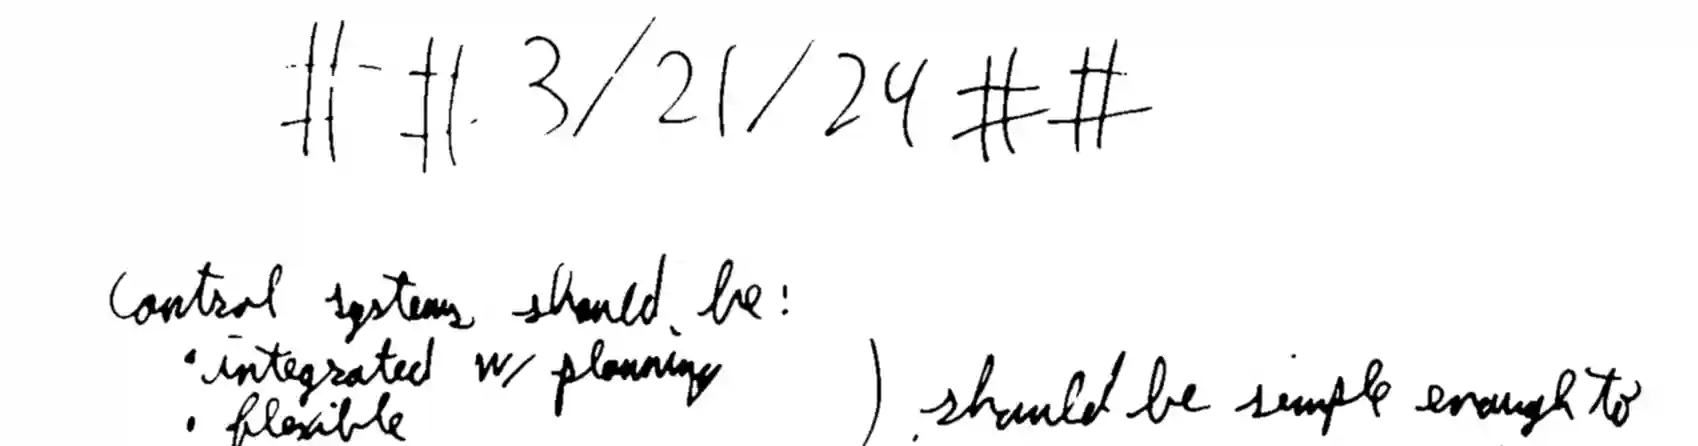 ## 3/21/24 ##
Control systems should be:
• integrated w/ planning
• flexible
) should be simple enough to